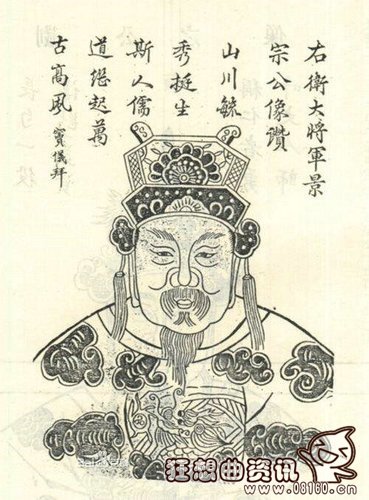 右衛大將軍景
宗公像讚
山川毓
秀挺生
斯人儒
道繼起萬
古高風 竇儀拜
狂想曲资讯
www.08160.cn